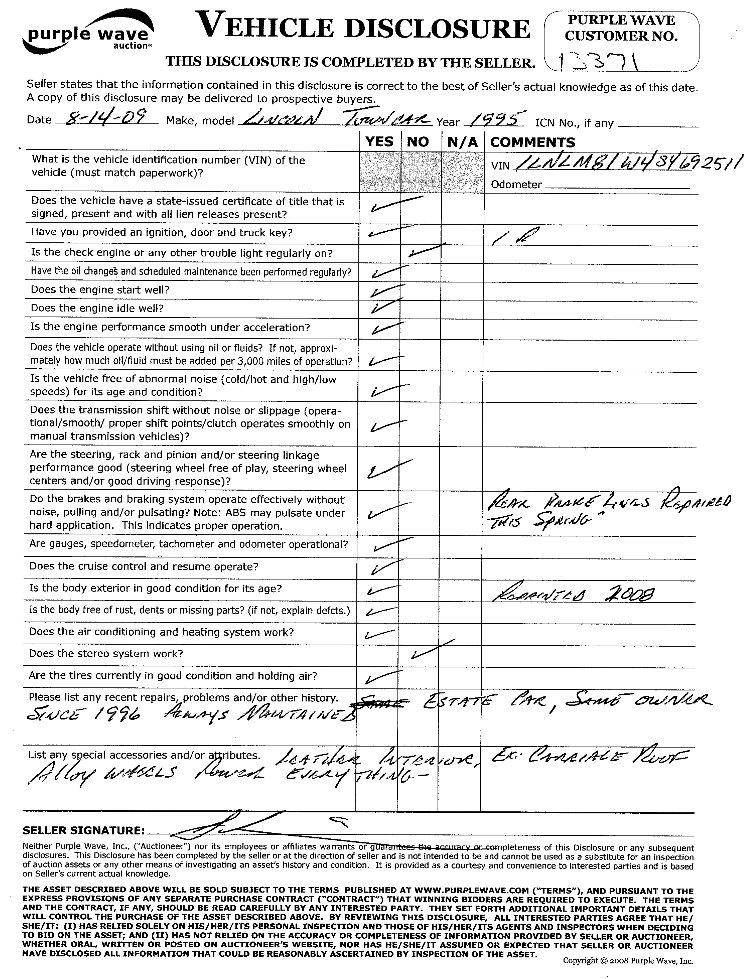 purple wave
auction®
VEHICLE DISCLOSURE
THIS DISCLOSURE IS COMPLETED BY THE SELLER.
PURPLE WAVE
CUSTOMER NO.
13371
Seller states that the information contained in this disclosure is correct to the best of Seller's actual knowledge as of this date.
A copy of this disclosure may be delivered to prospective buyers.
Date 8-14-09 Make, model LINCOLN TOWNCAR Year 1995 ICN No., if any
YES NO N/A COMMENTS
What is the vehicle identification number (VIN) of the
vehicle (must match paperwork)?
VIN 1LNLM81W4SY692511
Odometer
Does the vehicle have a state-issued certificate of title that is
signed, present and with all lien releases present?
Have you provided an ignition, door and truck key?
Is the check engine or any other trouble light regularly on?
Have the oil changes and scheduled maintenance been performed regularly?
Does the engine start well?
Does the engine idle well?
Is the engine performance smooth under acceleration?
Does the vehicle operate without using oil or fluids? If not, approxi-
mately how much oil/fluid must be added per 3,000 miles of operation?
Is the vehicle free of abnormal noise (cold/hot and high/low
speeds) for its age and condition?
Does the transmission shift without noise or slippage (opera-
tional/smooth/ proper shift points/clutch operates smoothly on
manual transmission vehicles)?
Are the steering, rack and pinion and/or steering linkage
performance good (steering wheel free of play, steering wheel
centers and/or good driving response)?
Do the brakes and braking system operate effectively without
noise, pulling and/or pulsating? Note: ABS may pulsate under
hard application. This indicates proper operation.
REAR BRAKE LINES REPAIRED
THIS SPRING
Are gauges, speedometer, tachometer and odometer operational?
Does the cruise control and resume operate?
Is the body exterior in good condition for its age?
REPAINTED 2008
Is the body free of rust, dents or missing parts? (if not, explain defcts.)
Does the air conditioning and heating system work?
Does the stereo system work?
Are the tires currently in good condition and holding air?
Please list any recent repairs, problems and/or other history. ESTATE CAR, SAME OWNER
SINCE 1996 ALWAYS MAINTAINED
List any special accessories and/or attributes. LEATHER INTERIOR, EX. CARRIAGE ROOF
Alloy WHEELS POWER EVERYTHING-
SELLER SIGNATURE:
Neither Purple Wave, Inc. ("Auctioneer") nor its employees or affiliates warrants or guarantees the accuracy or completeness of this Disclosure or any subsequent
disclosures. This Disclosure has been completed by the seller or at the direction of seller and is not intended to and cannot be used as a substitute for an inspection
of auction assets or any other means of investigating an asset's history and condition. It is provided as a courtesy and convenience to interested parties and is based
on Seller's current actual knowledge.
THE ASSET DESCRIBED ABOVE WILL BE SOLD SUBJECT TO THE TERMS PUBLISHED AT WWW.PURPLEWAVE.COM ("TERMS"), AND PURSUANT TO THE
EXPRESS PROVISIONS OF ANY SEPARATE PURCHASE CONTRACT ("CONTRACT") THAT WINNING BIDDERS ARE REQUIRED TO EXECUTE. THE TERMS
AND THE CONTRACT, IF ANY, SHOULD BE READ CAREFULLY BY ANY INTERESTED PARTY. THEY SET FORTH ADDITIONAL IMPORTANT DETAILS THAT
WILL CONTROL THE PURCHASE OF THE ASSET DESCRIBED ABOVE. BY REVIEWING THIS DISCLOSURE, ALL INTERESTED PARTIES AGREE THAT HE/
SHE/IT: (I) HAS RELIED SOLELY ON HIS/HER/ITS PERSONAL INSPECTION AND THOSE OF HIS/HER/ITS AGENTS AND INSPECTORS WHEN DECIDING
TO BID ON THE ASSET; AND (II) HAS NOT RELIED ON THE ACCURACY OR COMPLETENESS OF INFORMATION PROVIDED BY SELLER OR AUCTIONEER,
WHETHER ORAL, WRITTEN OR POSTED ON AUCTIONEER'S WEBSITE, NOR HAS HE/SHE/IT ASSUMED OR EXPECTED THAT SELLER OR AUCTIONEER
HAVE DISCLOSED ALL INFORMATION THAT COULD BE REASONABLY ASCERTAINED BY INSPECTION OF THE ASSET.
Copyright © 2008 Purple Wave, Inc.